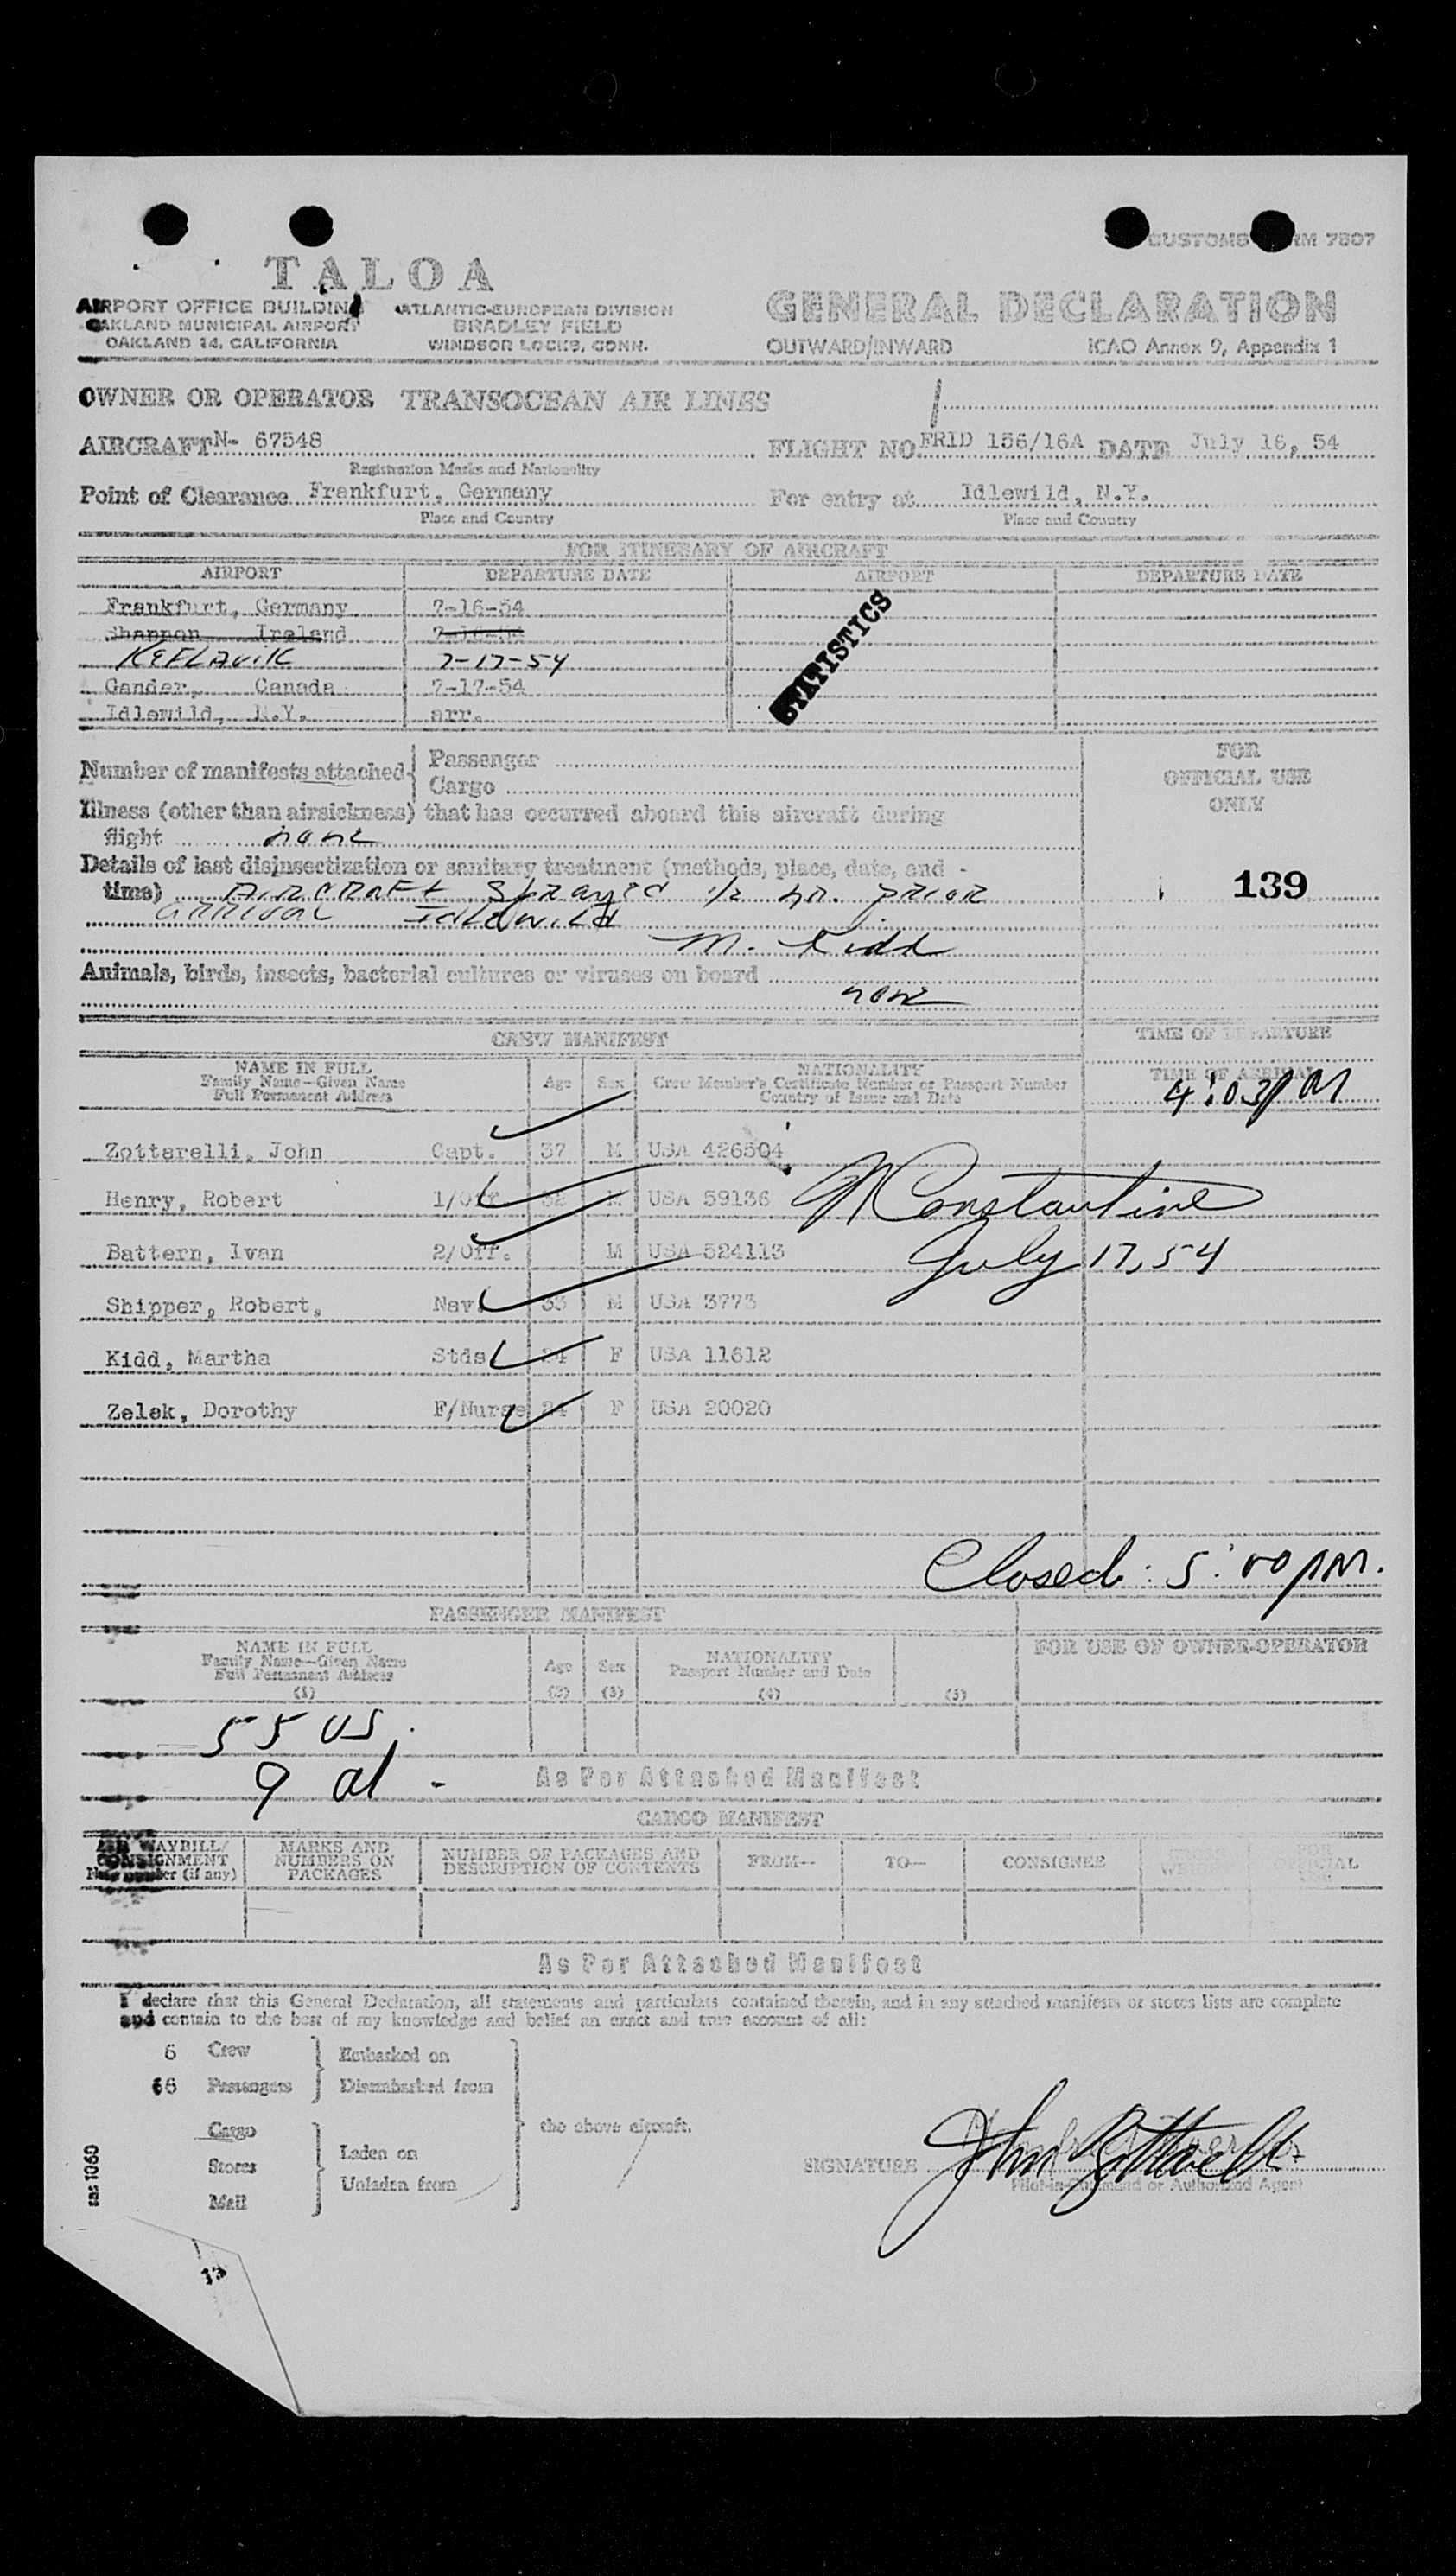 CUSTOMS RM 7507
TALOA
AIRPORT OFFICE BUILDING
OAKLAND MUNICIPAL AIRPORT
OAKLAND 14, CALIFORNIA
ATLANTIC-EUROPEAN DIVISION
BRADLEY FIELD
WINDSOR LOCKS, CONN.
GENERAL DECLARATION
OUTWARD/INWARD ICAO Annex 9, Appendix 1
OWNER OR OPERATOR TRANSOCEAN AIR LINES
AIRCRAFT N- 67548 FLIGHT NO. FRID 156/16A DATE July 16, 54
Registration Marks and Nationality
Point of Clearance Frankfurt, Germany For entry at Idlewild, N.Y.
Place and Country Place and Country
FOR ITINERARY OF AIRCRAFT
AIRPORT DEPARTURE DATE AIRPORT DEPARTURE DATE
Frankfurt, Germany 7-16-54
Shannon Ireland
KEFLAVIK 7-17-54
Gander, Canada 7-17-54
Idlewild, N.Y. arr.
STATISTICS
Number of manifests attached
Passenger
Cargo
FOR
OFFICIAL USE
ONLY
Illness (other than airsickness) that has occurred aboard this aircraft during
flight none
Details of last disinsectization or sanitary treatment (methods, place, date, and
time) AIRCRAFT Sprayed 1/2 hr. prior
arrival Idlewild
M. Kidd
139
Animals, birds, insects, bacterial cultures or viruses on board
none
CREW MANIFEST
TIME OF DEPARTURE
NAME IN FULL
Family Name—Given Name
Full Permanent Address
Age Sex
NATIONALITY
Crew Member's Certificate Number or Passport Number
Country of Issue and Date
TIME OF ARRIVAL
4:03PM
Zottarelli, John Capt. 37 M USA 426504
Henry, Robert 1/Off. M USA 59136
M Constantine
Battern, Ivan 2/Off. M USA 524113
July 17, 54
Shipper, Robert, Nav. 33 M USA 3773
Kidd, Martha Stds 24 F USA 11612
Zelek, Dorothy F/Nurse 24 F USA 20020
Closed: 5:00 PM.
PASSENGER MANIFEST
NAME IN FULL
Family Name—Given Name
Full Permanent Address
(1)
Age
(2)
Sex
(3)
NATIONALITY
Passport Number and Date
(4)
(5)
FOR USE OF OWNER-OPERATOR
55 US.
9 al -
As Per Attached Manifest
CARGO MANIFEST
AIR WAYBILL/
CONSIGNMENT
Note number (if any)
MARKS AND
NUMBERS ON
PACKAGES
NUMBER OF PACKAGES AND
DESCRIPTION OF CONTENTS
FROM—
TO—
CONSIGNEE
As Per Attached Manifest
I declare that this General Declaration, all statements and particulars contained therein, and in any attached manifests or stores lists are complete
and contain to the best of my knowledge and belief an exact and true account of all:
6 Crew
66 Passengers
Embarked on
Disembarked from
Cargo
Stores
Mail
Laden on
Unladen from
the above aircraft.
SIGNATURE John Zottarelli
Pilot-in-Command or Authorized Agent
sas 1060
13